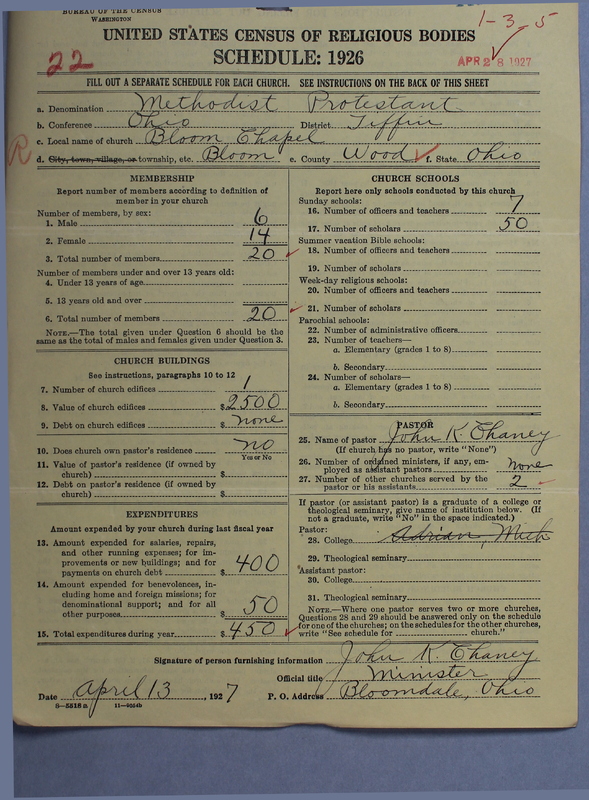 BUREAU OF THE CENSUS
WASHINGTON
1-3-5
UNITED STATES CENSUS OF RELIGIOUS BODIES
22
SCHEDULE: 1926
APR 28 1927
FILL OUT A SEPARATE SCHEDULE FOR EACH CHURCH. SEE INSTRUCTIONS ON THE BACK OF THIS SHEET
a. Denomination Methodist Protestant
b. Conference Ohio District Tiffin
c. Local name of church Bloom Chapel
R
d. City, town, village, or township, etc. Bloom e. County Wood f. State Ohio
MEMBERSHIP
Report number of members according to definition of
member in your church
Number of members, by sex:
1. Male 6
2. Female 14
3. Total number of members 20
Number of members under and over 13 years old:
4. Under 13 years of age
5. 13 years old and over
6. Total number of members 20
NOTE.—The total given under Question 6 should be the
same as the total of males and females given under Question 3.
CHURCH BUILDINGS
See instructions, paragraphs 10 to 12
7. Number of church edifices 1
8. Value of church edifices $2500
9. Debt on church edifices $none
10. Does church own pastor's residence no
Yes or No
11. Value of pastor's residence (if owned by
church) $
12. Debt on pastor's residence (if owned by
church) $
EXPENDITURES
Amount expended by your church during last fiscal year
13. Amount expended for salaries, repairs,
and other running expenses; for im-
provements or new buildings; and for
payments on church debt $400
14. Amount expended for benevolences, in-
cluding home and foreign missions; for
denominational support; and for all
other purposes $50
15. Total expenditures during year $450
CHURCH SCHOOLS
Report here only schools conducted by this church
Sunday schools:
16. Number of officers and teachers 7
17. Number of scholars 50
Summer vacation Bible schools:
18. Number of officers and teachers
19. Number of scholars
Week-day religious schools:
20. Number of officers and teachers
21. Number of scholars
Parochial schools:
22. Number of administrative officers
23. Number of teachers—
a. Elementary (grades 1 to 8)
b. Secondary
24. Number of scholars—
a. Elementary (grades 1 to 8)
b. Secondary
PASTOR
25. Name of pastor John K Chaney
(If church has no pastor, write "None")
26. Number of ordained ministers, if any, em-
ployed as assistant pastors none
27. Number of other churches served by the
pastor or his assistants 2
If pastor (or assistant pastor) is a graduate of a college or
theological seminary, give name of institution below. (If
not a graduate, write "No" in the space indicated.)
Pastor:
28. College Adrian, Mich
29. Theological seminary
Assistant pastor:
30. College
31. Theological seminary
NOTE.—Where one pastor serves two or more churches,
Questions 28 and 29 should be answered only on the schedule
for one of the churches; on the schedules for the other churches,
write "See schedule for church."
Signature of person furnishing information John K Chaney
Official title Minister
Date April 13, 1927 P. O. Address Bloomdale, Ohio